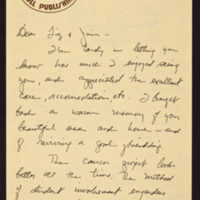 LL PUBLISH
Dear Liz & Jim -
I'm tardy in letting you
know how much I enjoyed seeing
you, and appreciated the excellent
care, accomodations, etc. I brought
back a warm memory of your
beautiful area and home - and
of reviving a good friendship.
The cancer project looks
better all the time. The method
of student involvement engenders